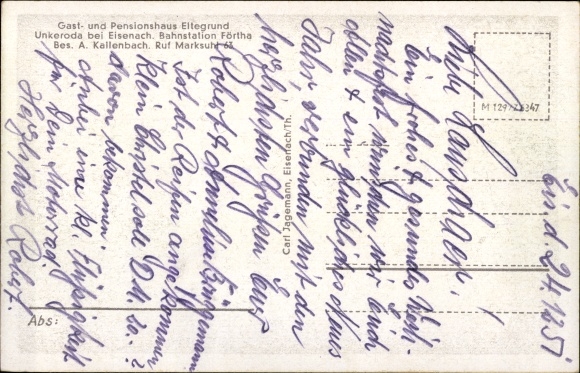 Gast- und Pensionshaus Eltegrund
Unkeroda bei Eisenach. Bahnstation Förtha
Bes. A. Kallenbach. Ruf Marksuhl 63
M 129/Z 6347
Carl Jagemann, Eisenach/Th.
Abs:
24.12.51
Ein frohes & gesundes Weih-
nachtsfest wünschen wir Euch
allen & ein glückliches Neues
Jahr, verbunden mit den
herzlichsten Grüßen Eure
Robert &
Ist der Reifen angekommen?
Klein soll DM. 20.-
davon bekommen.
eine kl. Flüssigkeit
für Dein Motorrad.
Herzlichst Robert.